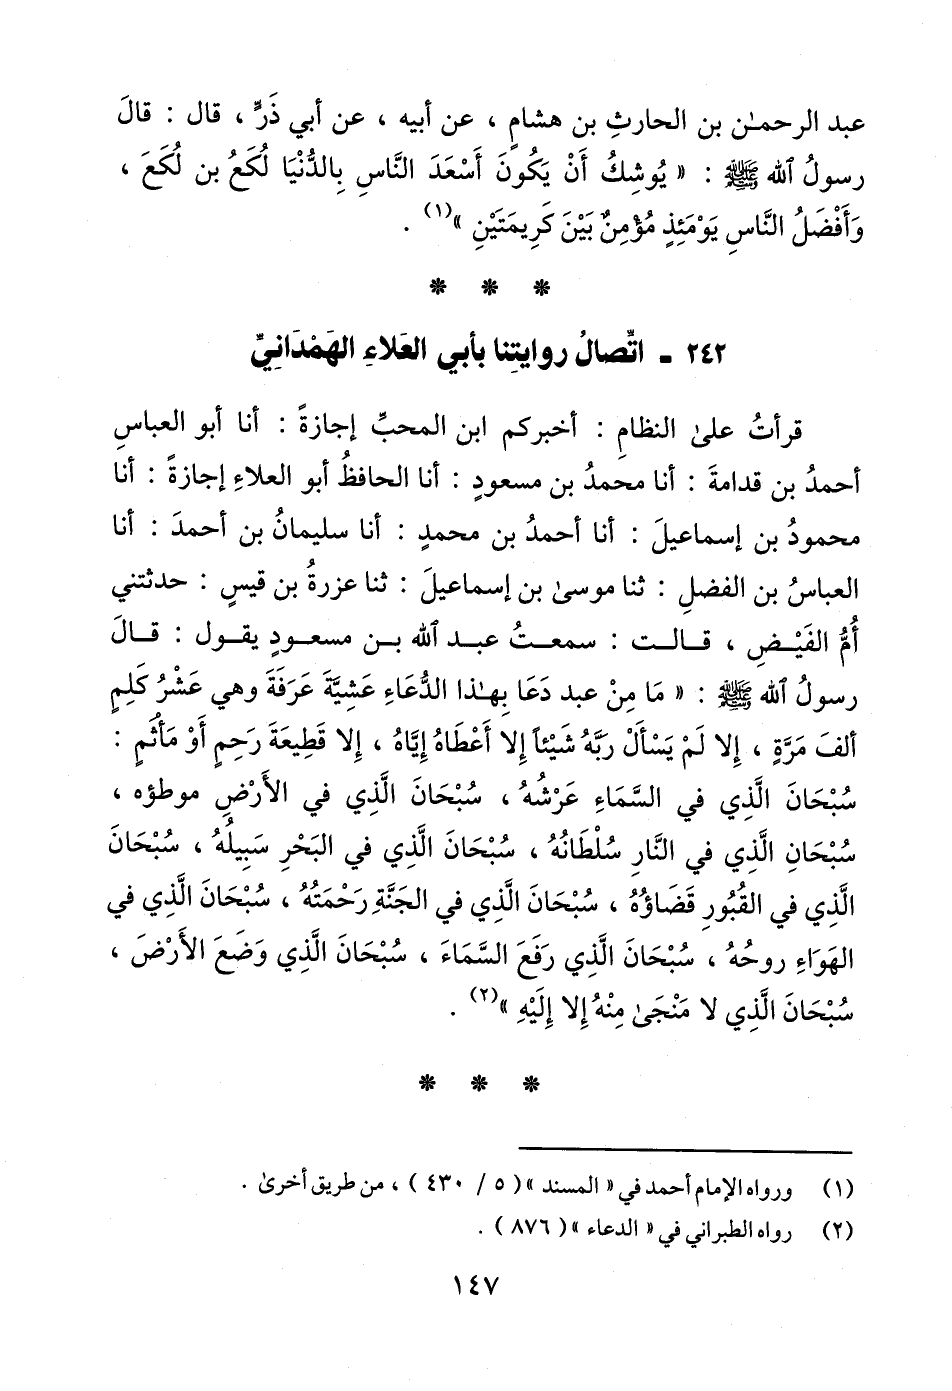 عبد الرحمٰن بن الحارثِ بن هشامٍ ، عن أبيه ، عن أبي ذَرٍّ ، قال : قالَ
رسولُ ٱلله ﷺ : « يُوشِكُ أَنْ يَكُونَ أَسْعَدَ النَّاسِ بِالدُّنْيَا لُكَعُ بن لُكَعَ ،
وَأَفْضَلُ النَّاسِ يَوْمَئِذٍ مُؤْمِنٌ بَيْنَ كَرِيمَتَيْنِ »(١) .
* * *
٢٤٢ ـ اتِّصالُ روايتِنا بأبي العَلاءِ الهَمْدَانِيِّ
قرأتُ علىٰ النظامِ : أخبركم ابن المحبِّ إجازةً : أنا أبو العباسِ
أحمدُ بن قدامةَ : أنا محمدُ بن مسعودٍ : أنا الحافظُ أبو العلاءِ إجازةً : أنا
محمودُ بن إسماعيلَ : أنا أحمدُ بن محمدٍ : أنا سليمانُ بن أحمدَ : أنا
العباسُ بن الفضلِ : ثنا موسىٰ بن إسماعيلَ : ثنا عزرةُ بن قيسٍ : حدثتني
أُمُّ الفَيْضِ ، قالت : سمعتُ عبد ٱلله بن مسعودٍ يقول : قالَ
رسولُ ٱلله ﷺ : « مَا مِنْ عبد دَعَا بِهٰذا الدُّعَاءِ عَشِيَّةَ عَرَفَةَ وهي عَشْرُ كَلِمٍ
ألفَ مَرَّةٍ ، إلا لَمْ يَسْأَلْ رَبَّهُ شَيْئاً إلا أَعْطَاهُ إيَّاهُ ، إلا قَطِيعَةَ رَحِمٍ أَوْ مَأْثَمٍ :
سُبْحَانَ الَّذِي في السَّمَاءِ عَرْشُهُ ، سُبْحَانَ الَّذِي في الأَرْضِ موطؤه ،
سُبْحَانِ الَّذِي في النَّار سُلْطَانُهُ ، سُبْحَانَ الَّذِي في البَحْرِ سَبِيلُهُ ، سُبْحَانَ
الَّذِي في القُبُورِ قَضَاؤُهُ ، سُبْحَانَ الَّذِي في الجَنَّةِ رَحْمَتُهُ ، سُبْحَانَ الَّذِي في
الهَوَاءِ روحُهُ ، سُبْحَانَ الَّذِي رَفَعَ السَّمَاءَ ، سُبْحَانَ الَّذِي وَضَعَ الأَرْضَ ،
سُبْحَانَ الَّذِي لا مَنْجَىٰ مِنْهُ إلا إلَيْهِ »(٢) .
* * *
(١) ورواه الإمام أحمد في « المسند » ( ٥ / ٤٣٠ ) ، من طريق أخرىٰ .
(٢) رواه الطبراني في « الدعاء » ( ٨٧٦ ) .
١٤٧